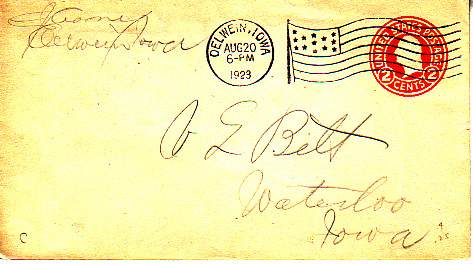 Oelwein, Iowa
OELWEIN, IOWA
AUG 20
6-PM
1923
UNITED STATES POSTAGE
2 CENTS 2
O L Bilt
Waterloo
Iowa
C